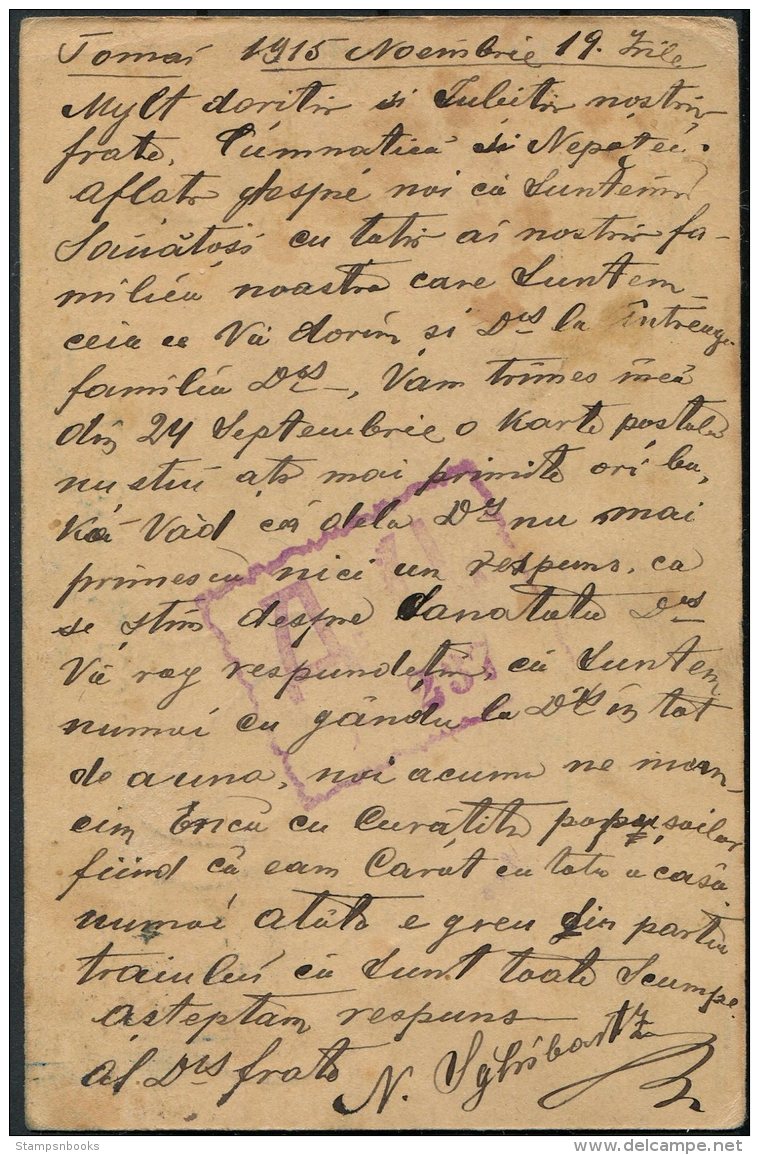 Tomai 1915 Noembrie 19. Zile
Mylt doritir si Iubitir nostrir
frate, Cumnatică si Nepoteii.
aflatr despre noi că Suntem
Sănătosi cu totir ai nostrir fa-
milieă noastra care Suntem
ceia ce Vă dorim si Dvs la întreaga
familia Dvs, Vam trimes încă
din 24 Septembrie o Karte postala
nu stiu atr mai primit ori ba,
Kă Văd că dela Dvs nu mai
primescu nici un respuns, ca
se stim despre Sanatate Dvs
Vă rog respundetir, că Suntem
numai cu gându la Dvs in tot
de a una, noi acuma ne mun-
cim încă cu Curatitu popusoilor
fiind că eam Carat cu totu acasă
numai atâta e greu din partea
traiului că Sunt toate Scumpe
asteptam respuns
al Dvs frate N.
237
Stampsnbooks